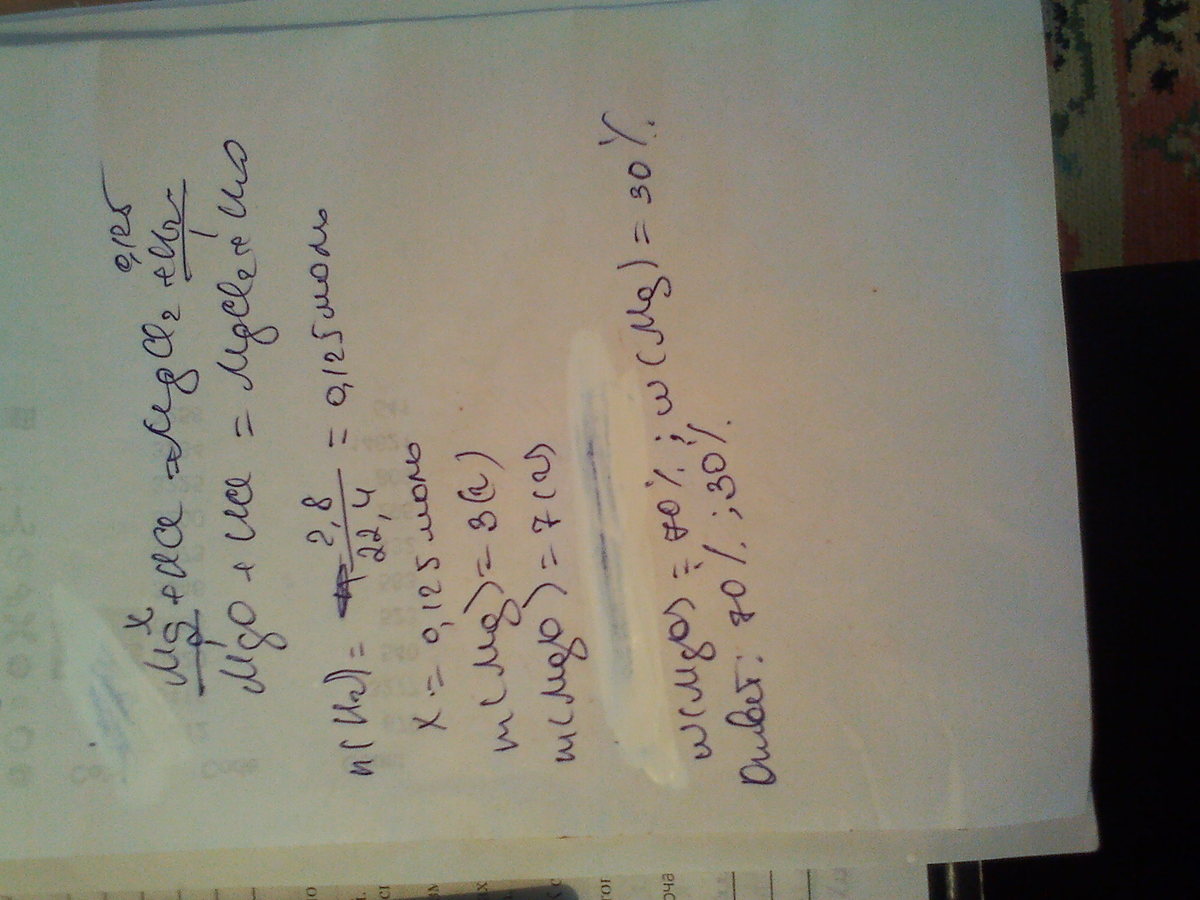 0,125
x
Mg + HCl = MgCl2 + H2
1 1
MgO + HCl = MgCl2 + H2O
n(H2) = 2,8/22,4 = 0,125 моль
x = 0,125 моль
m(Mg) = 3(г)
m(MgO) = 7(г)
w(MgO) = 70%; w(Mg) = 30%.
Ответ: 70%; 30%.
Code